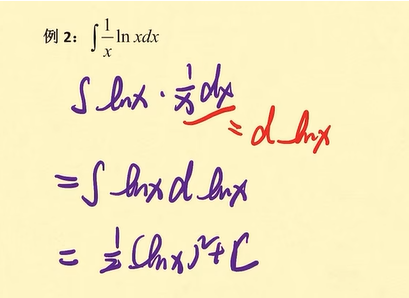 例 2: ∫ 1/x ln xdx
∫ lnx · 1/x dx
= d lnx
= ∫ lnx d lnx
= 1/2 (lnx)² + C